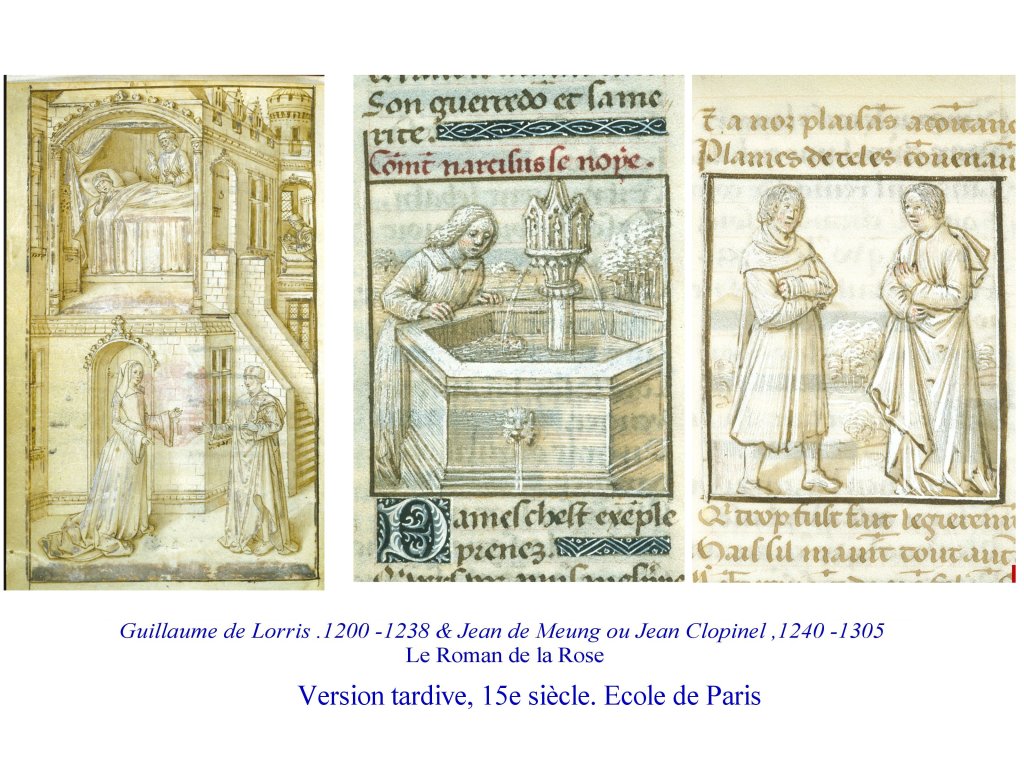 Son guerredō et sa me
rite.
Cōmt narcisus se noye.
Dames chest exēple
prenez.
T a noz plaisās acoitanc
Qr trop fust fait legieremt
Guillaume de Lorris .1200 -1238 & Jean de Meung ou Jean Clopinel ,1240 -1305
Le Roman de la Rose
Version tardive, 15e siècle. Ecole de Paris